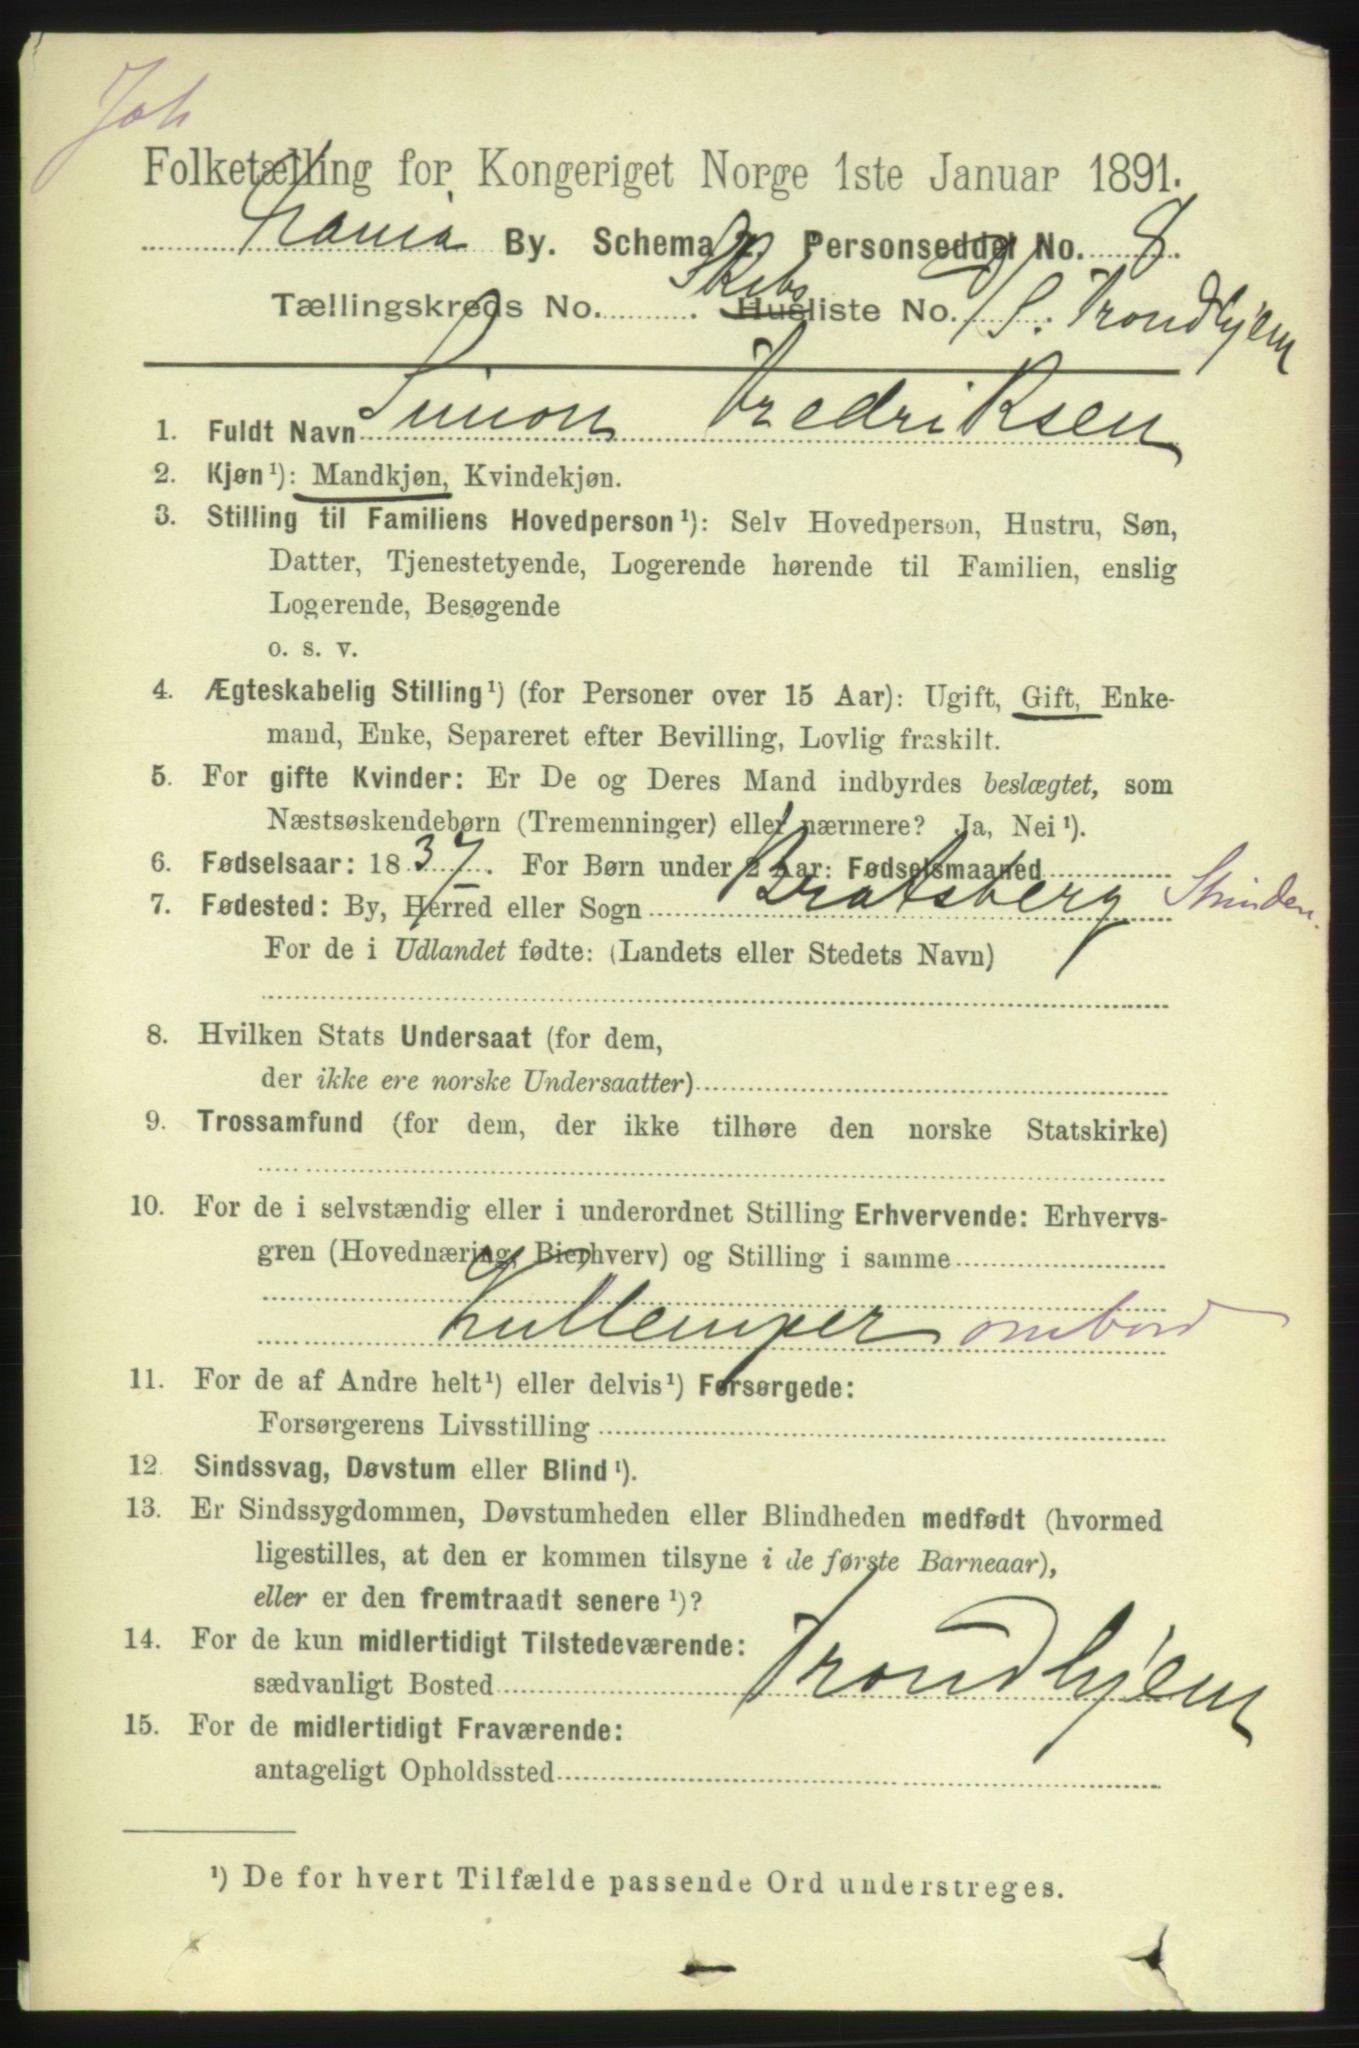 Joh
Folketælling for Kongeriget Norge 1ste Januar 1891.
By. Schema 2. Personseddel No. 8.
Tællingskreds No. . Skibs Husliste No. D/S. Trondhjem
1. Fuldt Navn Simon Fredriksen
2. Kjøn¹): Mandkjøn, Kvindekjøn.
3. Stilling til Familiens Hovedperson¹): Selv Hovedperson, Hustru, Søn,
Datter, Tjenestetyende, Logerende hørende til Familien, enslig
Logerende, Besøgende
o. s. v.
4. Ægteskabelig Stilling¹) (for Personer over 15 Aar): Ugift, Gift, Enke-
mand, Enke, Separeret efter Bevilling, Lovlig fraskilt.
5. For gifte Kvinder: Er De og Deres Mand indbyrdes beslægtet, som
Næstsøskendebørn (Tremenninger) eller nærmere? Ja, Nei¹).
6. Fødselsaar: 1837. For Børn under 2 Aar: Fødselsmaaned
7. Fødested: By, Herred eller Sogn Bratsberg Strinden.
For de i Udlandet fødte: (Landets eller Stedets Navn)
8. Hvilken Stats Undersaat (for dem,
der ikke ere norske Undersaatter)
9. Trossamfund (for dem, der ikke tilhøre den norske Statskirke)
10. For de i selvstændig eller i underordnet Stilling Erhvervende: Erhvervs-
gren (Hovednæring, Bierhverv) og Stilling i samme
Kullemper ombord
11. For de af Andre helt¹) eller delvis¹) Forsørgede:
Forsørgerens Livsstilling
12. Sindssvag, Døvstum eller Blind¹).
13. Er Sindssygdommen, Døvstumheden eller Blindheden medfødt (hvormed
ligestilles, at den er kommen tilsyne i de første Barneaar),
eller er den fremtraadt senere¹)?
14. For de kun midlertidigt Tilstedeværende:
sædvanligt Bosted Trondhjem
15. For de midlertidigt Fraværende:
antageligt Opholdssted
¹) De for hvert Tilfælde passende Ord understreges.